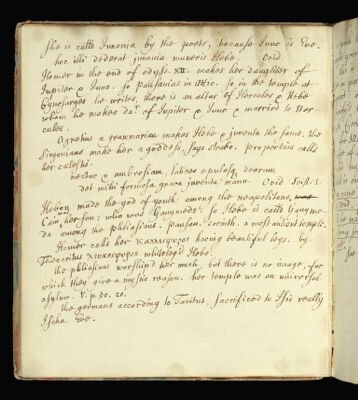 She is calld Junonia by the poets; because Juno is Eve.
hoc illi dederat junonia muneris Hebe. Ovid.
Homer in the end of odyss. XII. makes her daughter of
Jupiter & Juno. so Pausanias in Attic. so in the temple at
Cynosarges he writes, there is an altar of Hercules & Hebe
whom he makes dar. of Jupiter & Juno & married to Her-
cules.
a grammarian makes Hebe & juventa the same. the
Sicyonians make her a goddess, says Strabo. Propertius calls
her calestis.
nectar & ambrosiam, latices epulasq; deorum
det mihi formosa grava juventa manu. Ovid Trist. 1.
Hebon made the god of youth among the neapolitans,
her son: who was Ganymede. so Hebe is calld Ganyme-
da among the phliasians. pausan. corinth. a most antient temple.
Homer calls her having beautiful legs. by
Theocritus Hebe.
the phliasians worshipd her much, but there is no image, for
which they give a mystic reason. her temple was an universal
asylum. V. p. 50. 20.
the germans according to Tacitus, sacrificed to Isis really
Ischa Eve.